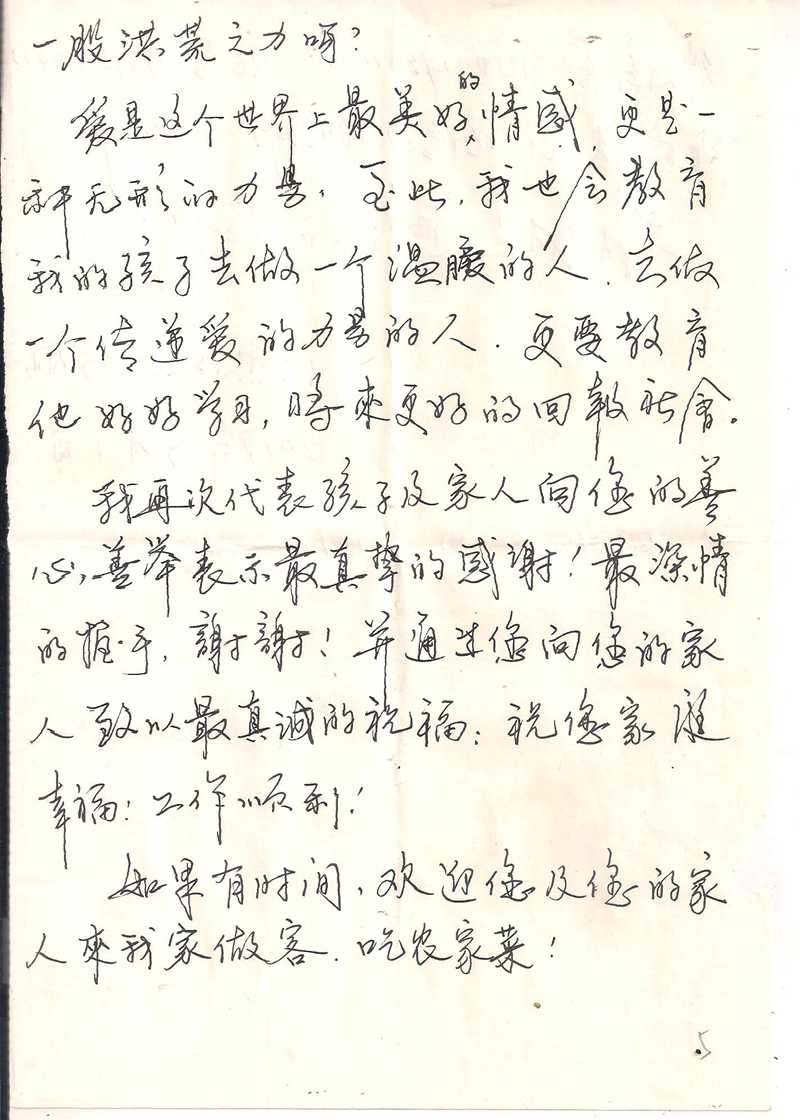 一股洪荒之力呀？
爱是这个世界上最美好的情感，更是一
种无形的力量，至此，我也会教育
我的孩子去做一个温暖的人，去做
一个传递爱的力量的人，更要教育
他好好学习，将來更好的回報社會。
我再次代表孩子及家人向您的善
心，善举表示最真挚的感謝！最深情
的握手，謝謝！并通过您向您的家
人致以最真诚的祝福：祝您家庭
幸福！工作顺利！
如果有时间，欢迎您及您的家
人來我家做客，吃农家菜！
5